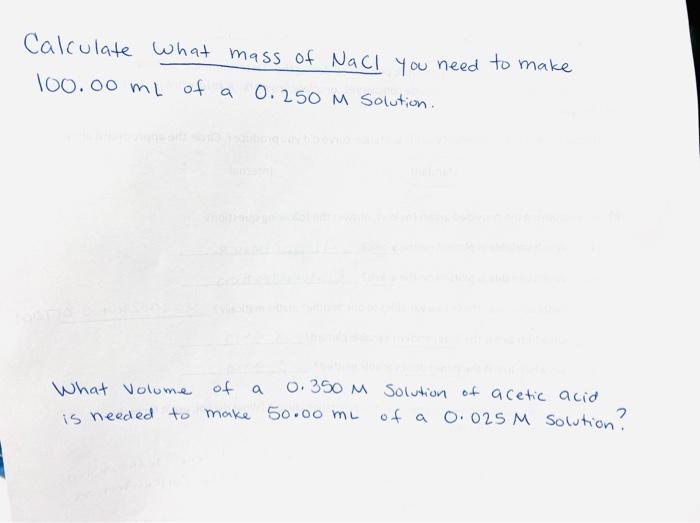 Calculate what mass of NaCl you need to make
100.00 mL of a 0.250 M Solution.
What Volume of a 0.350 M Solution of acetic acid
is needed to make 50.00 mL of a 0.025 M Solution?